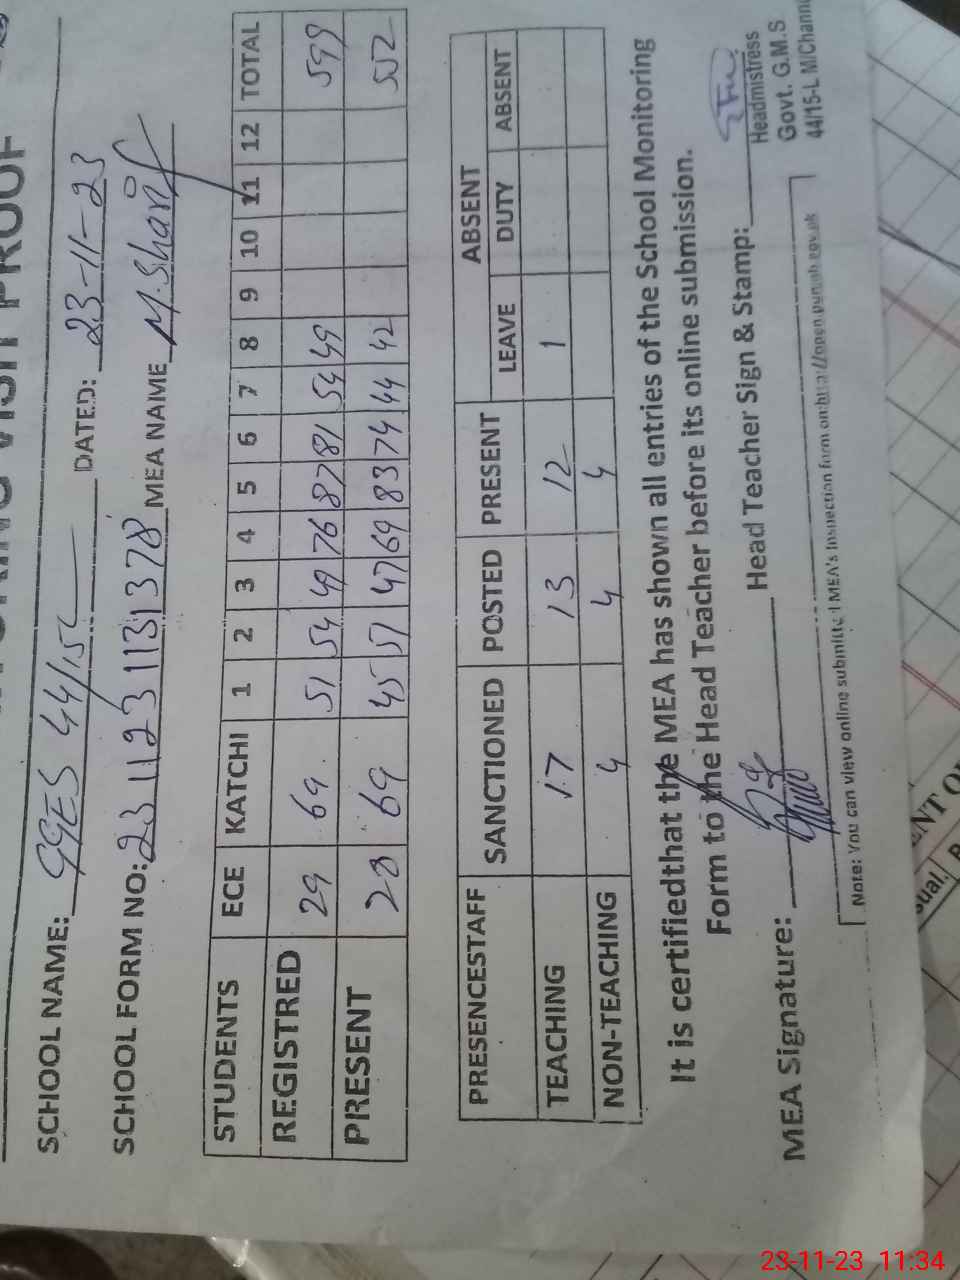 VISIT PROOF
SCHOOL NAME: GGES 44/15L DATED: 23-11-23
SCHOOL FORM NO: 23 11 23 113 1378 MEA NAME M. Sharif
STUDENTS ECE KATCHI 1 2 3 4 5 6 7 8 9 10 11 12 TOTAL
REGISTRED 29 69 51 54 49 76 87 81 54 49 599
PRESENT 28 69 45 51 47 69 83 74 44 42 552
ABSENT
PRESENCESTAFF SANCTIONED POSTED PRESENT LEAVE DUTY ABSENT
TEACHING 17 13 12 1
NON-TEACHING 4 4 4
It is certifiedthat the MEA has shown all entries of the School Monitoring
Form to the Head Teacher before its online submission.
MEA Signature: Head Teacher Sign & Stamp:
Headmistress
Govt. G.M.S
44/15-L M/Channu
Note: You can view online submitted MEA's Inspection form on:http://open.punjab.gov.pk
ENT
sual.
23-11-23 11:34